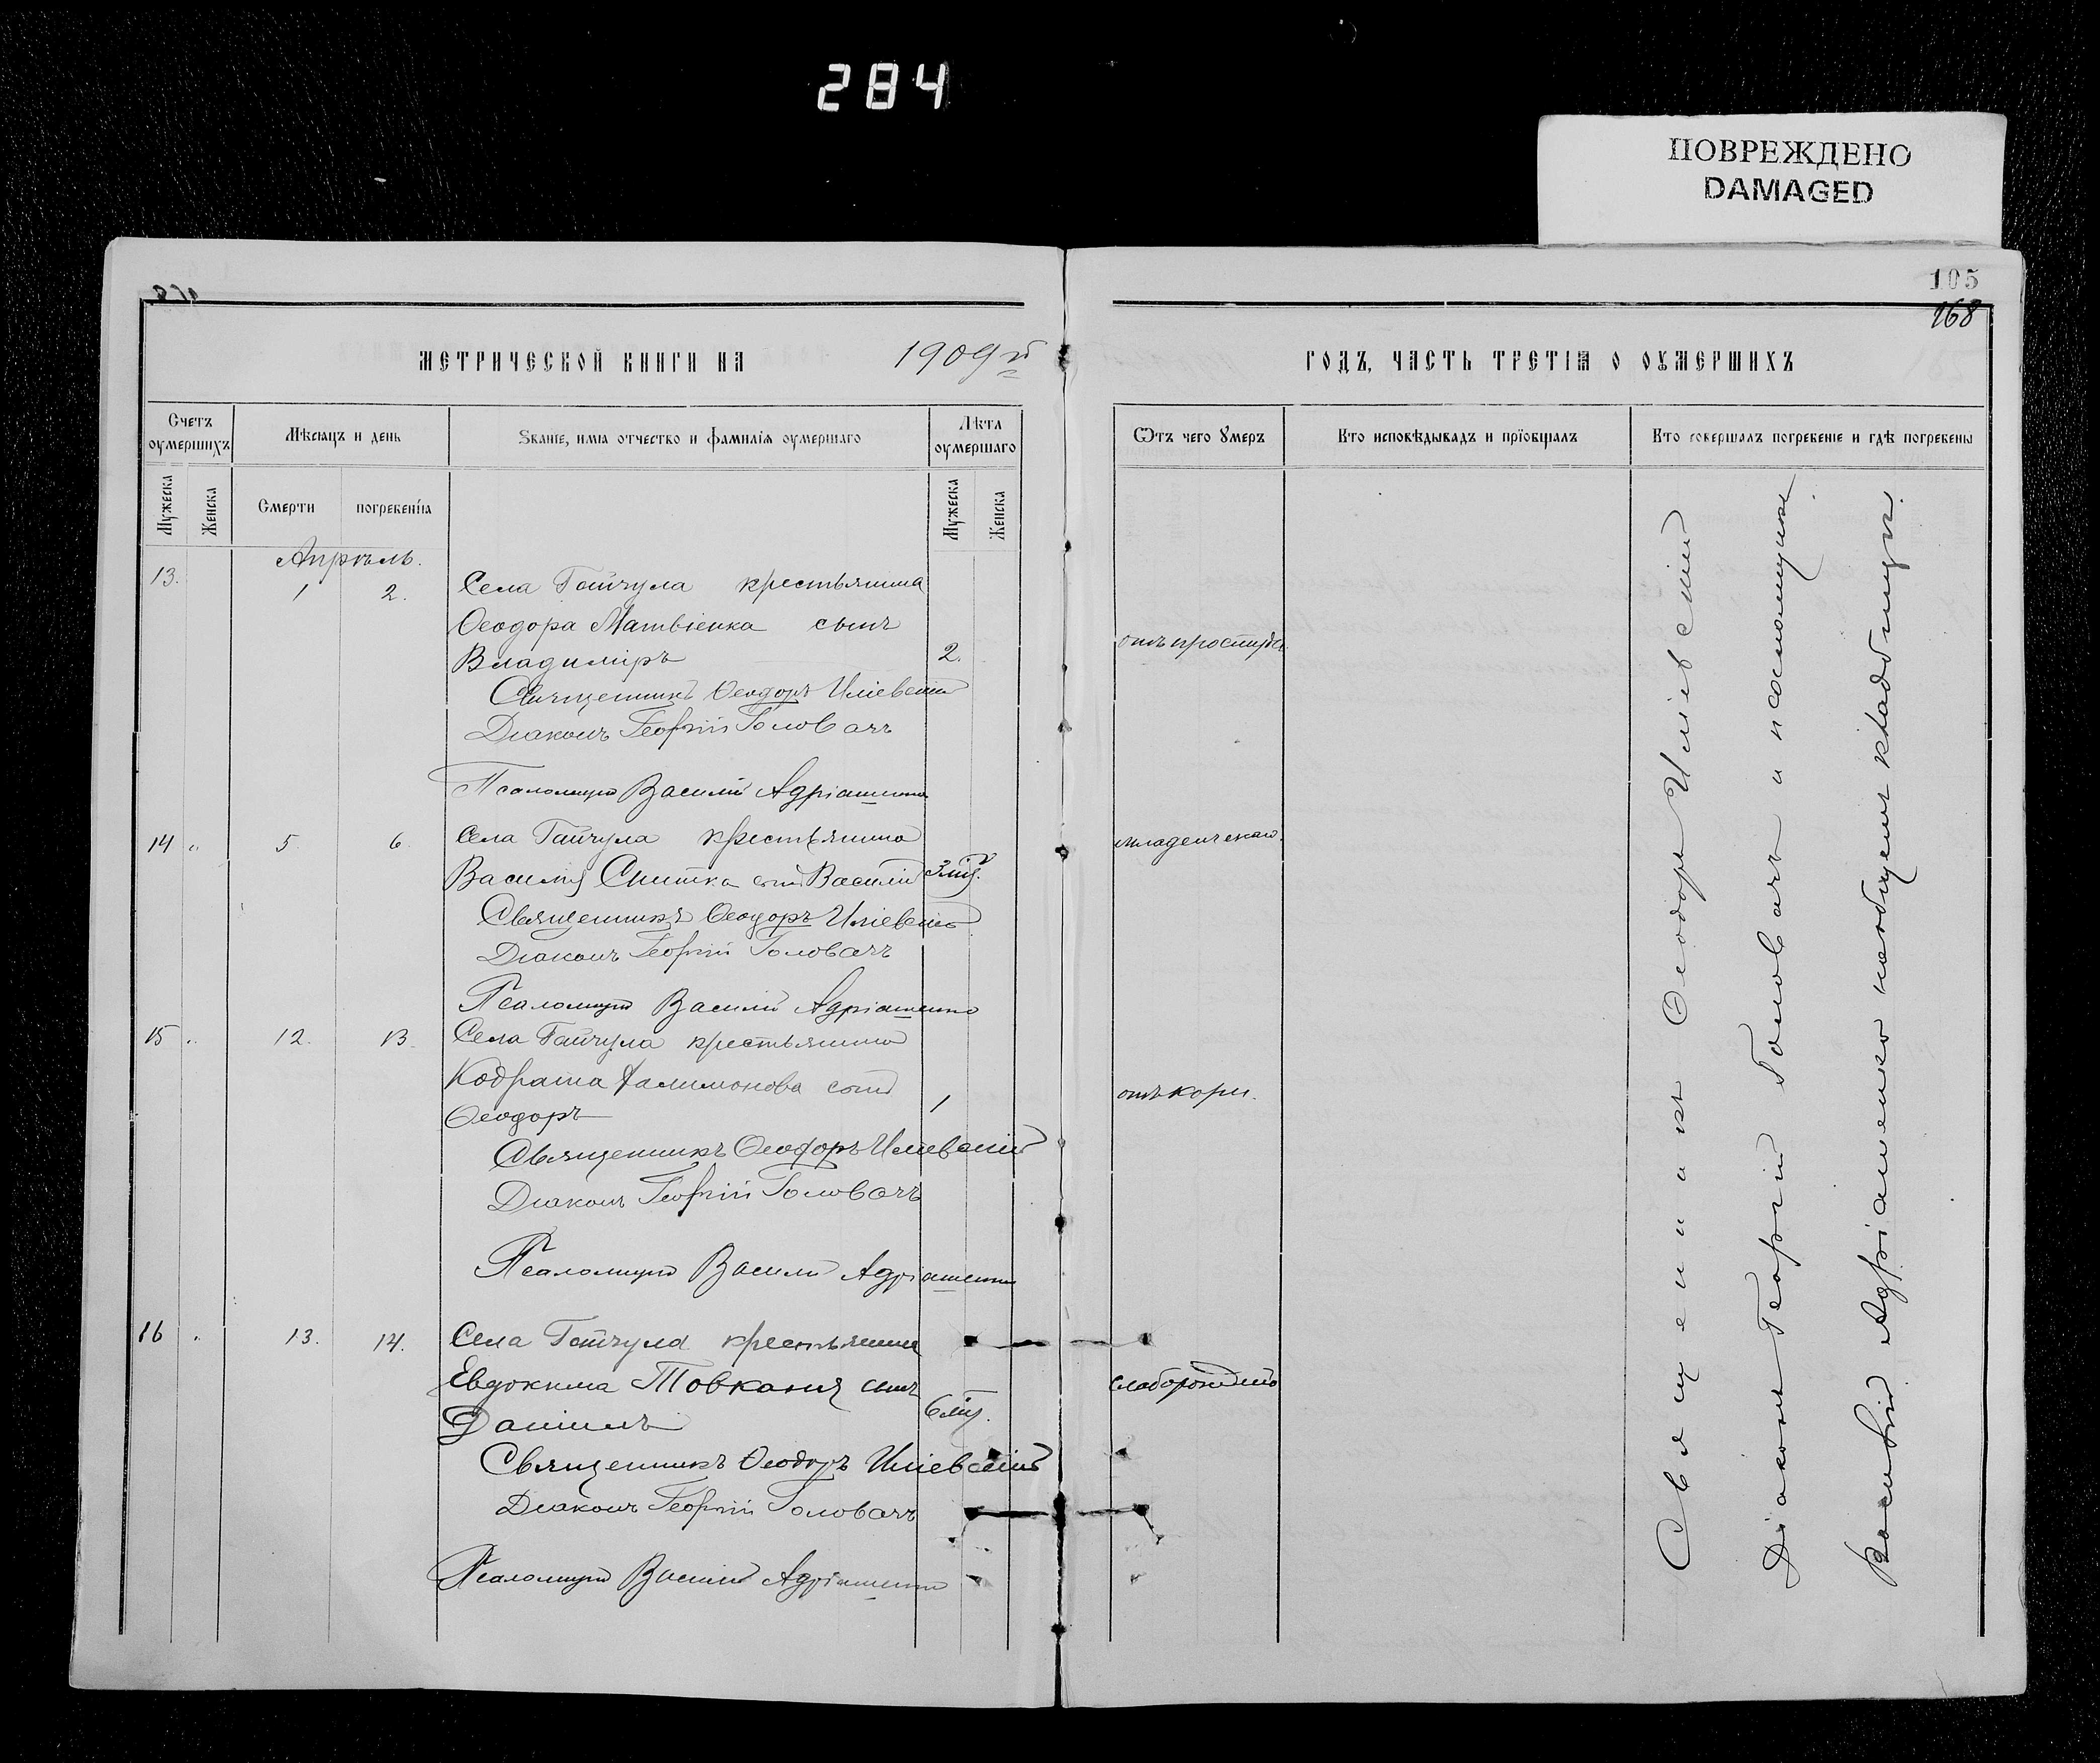 284
ПОВРЕЖДЕНО
DAMAGED
105
168
МЕТРИЧЕСКОЙ КНИГИ НА 1909й ГОДЪ, ЧАСТЬ ТРЕТІЯ О ОУМЕРШИХЪ
Счетъ оумершихъ
Мѣсяцъ и день
Званіе, имя отчество и фамилія оумершаго
Лѣта оумершаго
Ѿтъ чего оумеръ
Кто исповѣдывалъ и пріобщалъ
Кто совершалъ погребеніе и гдѣ погребены
Мужеска
Женска
Смерти
погребенія
Мужеска
Женска
Апрѣль.
13. 1 2. Села Гайчула крестьянина
Ѳеодора Матвіенка сынъ
Владиміръ 2. отъ простуды.
Священникъ Ѳеодоръ Иліевскій
Діаконъ Георгій Головачъ
Псаломщикъ Василій Адріаненко
14 „ 5 6 Села Гайчула крестьянина
Василія Снитка сынъ Василій 3 мц. младенческой.
Священникъ Ѳеодоръ Иліевскій
Діаконъ Георгій Головачъ
Псаломщикъ Василій Адріаненко
15 „ 12. 13. Села Гайчула крестьянина
Кодрата Фалимонова сынъ
Ѳеодоръ 1 отъ кори.
Священникъ Ѳеодоръ Иліевскій
Діаконъ Георгій Головачъ
Псаломщикъ Василій Адріаненко
16 „ 13. 14. Села Гайчула крестьянина
Евдокима Товкача сынъ
Даніилъ 6 мц. слаборожденіе
Священникъ Ѳеодоръ Иліевскій
Діаконъ Георгій Головачъ
Псаломщикъ Василій Адріаненко
Священникъ Ѳеодоръ Иліевскій
Діаконъ Георгій Головачъ и псаломщикъ
Василій Адріаненко на общемъ кладбищѣ.